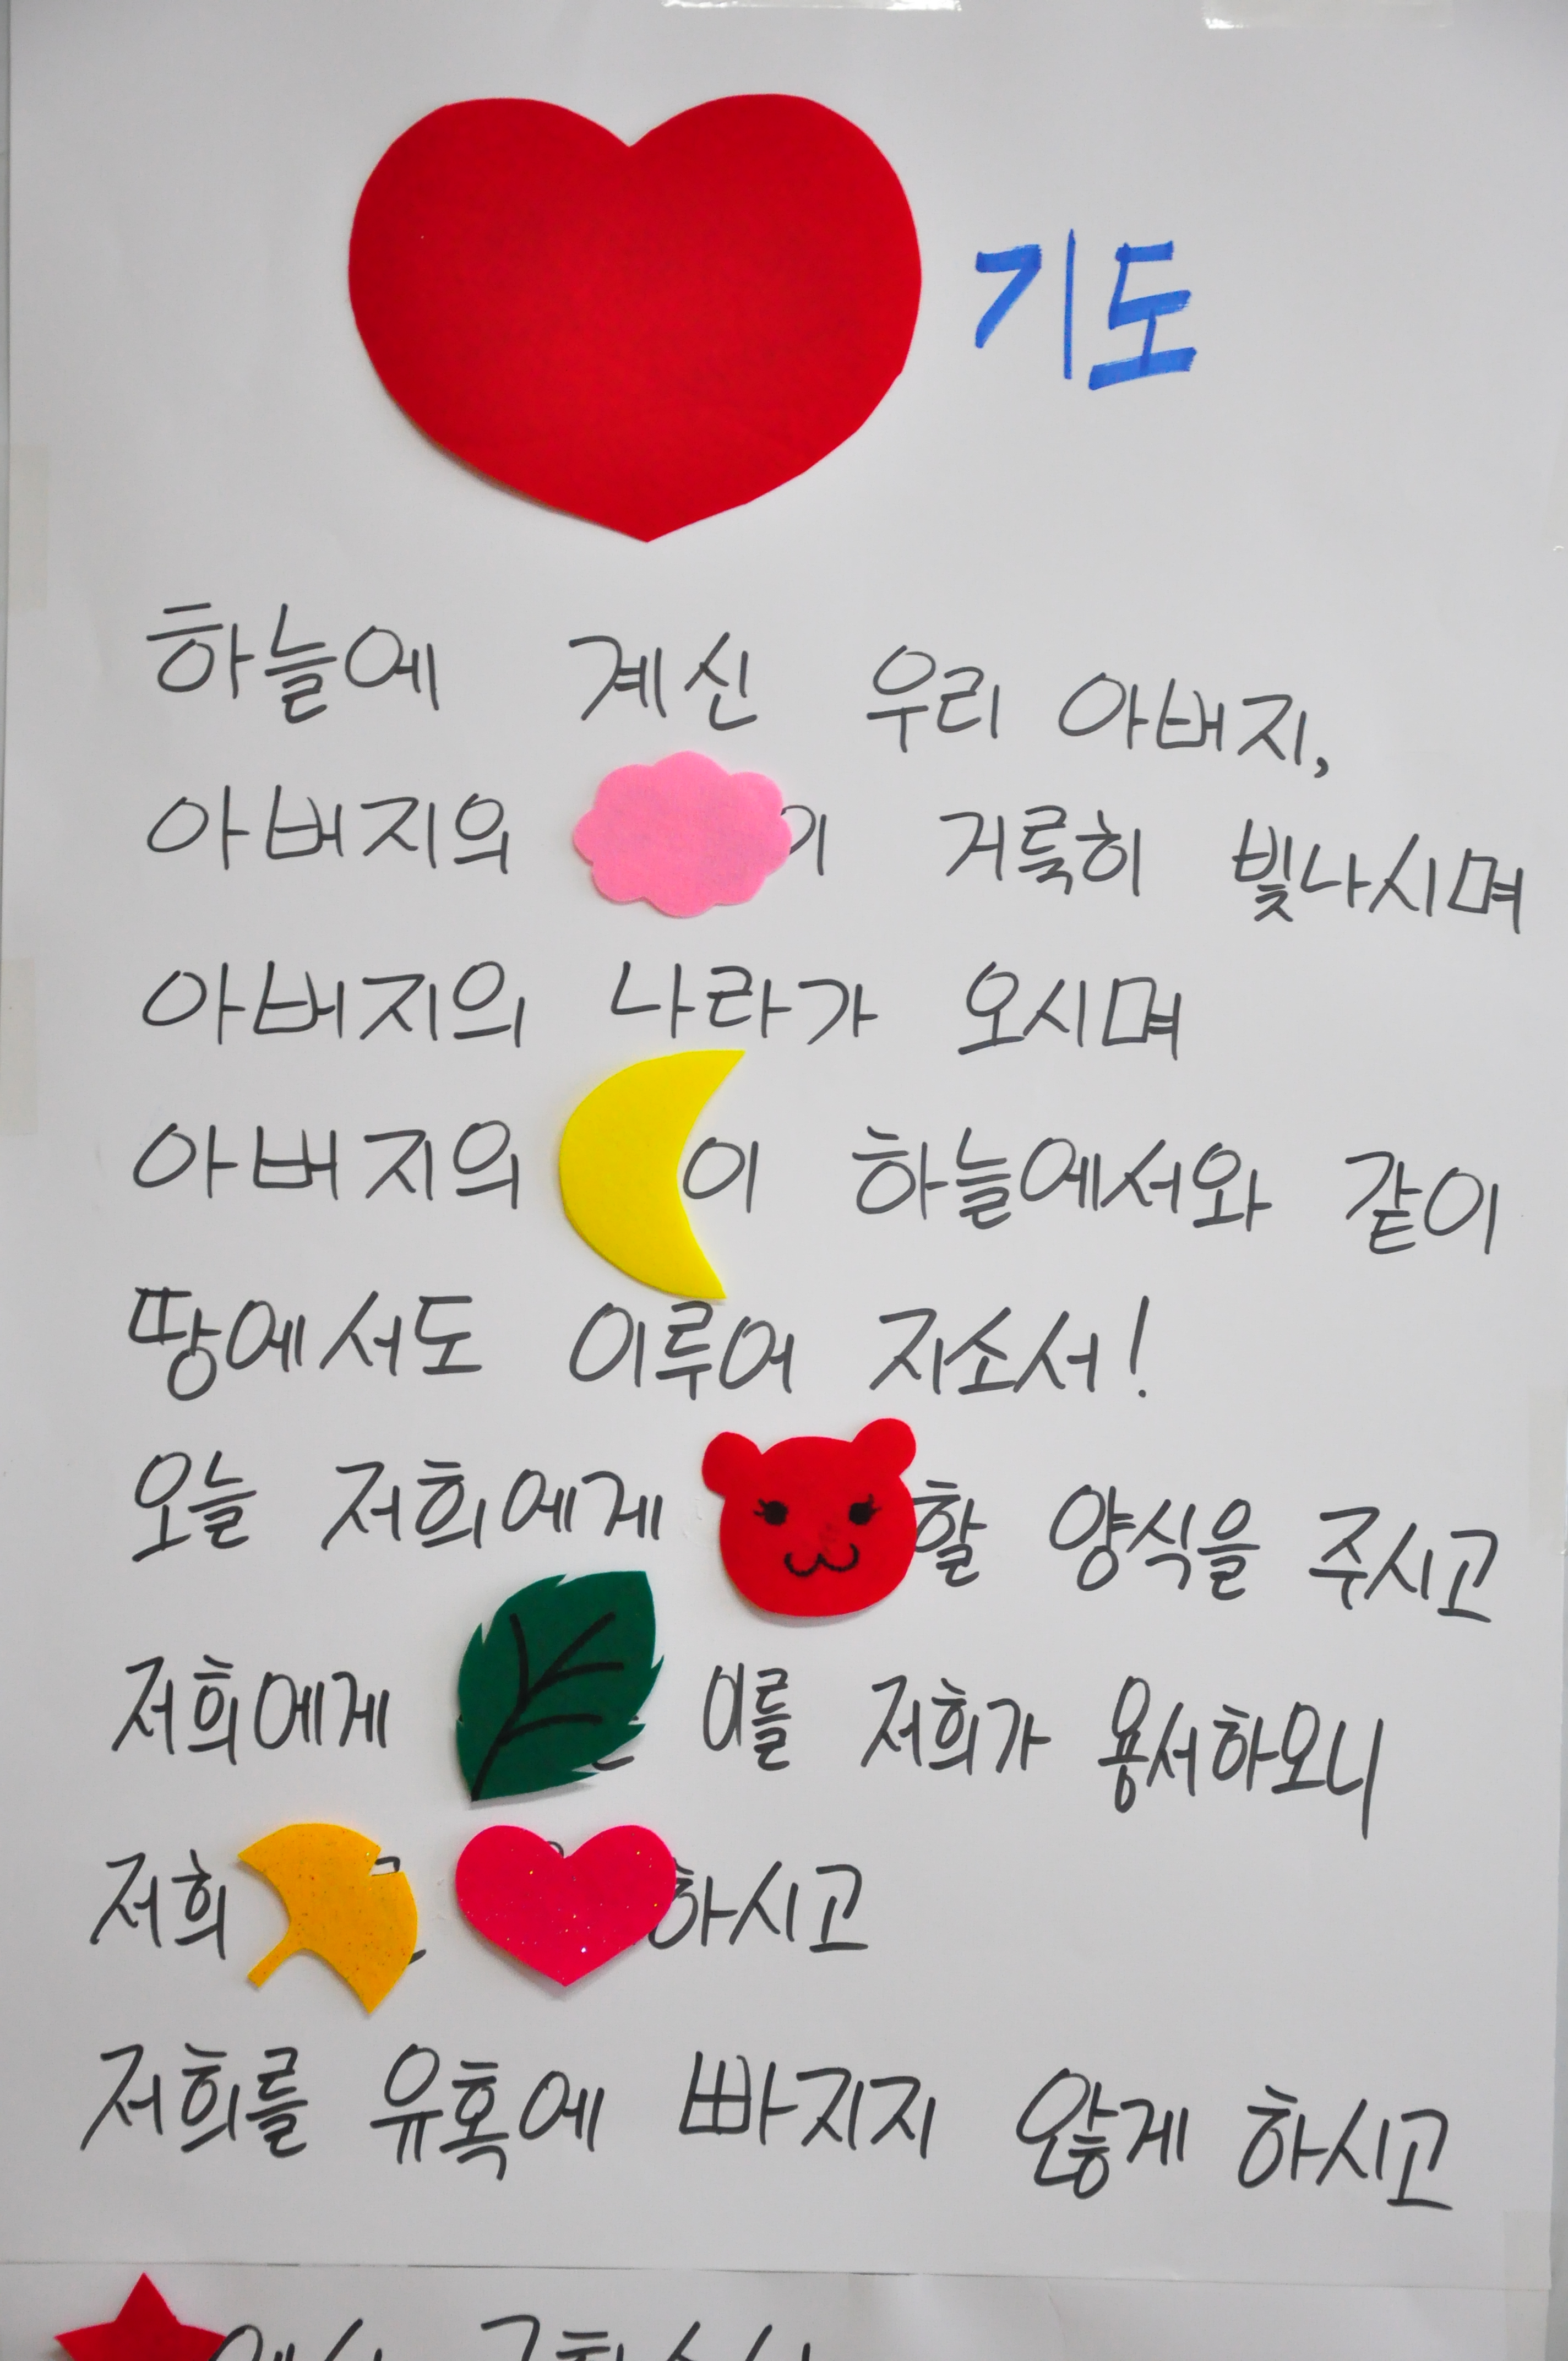 기도
하늘에 계신 우리 아버지,
아버지의 이 거룩히 빛나시며
아버지의 나라가 오시며
아버지의 이 하늘에서와 같이
땅에서도 이루어 지소서!
오늘 저희에게 할 양식을 주시고
저희에게 이를 저희가 용서하오니
저희 하시고
저희를 유혹에 빠지지 않게 하시고